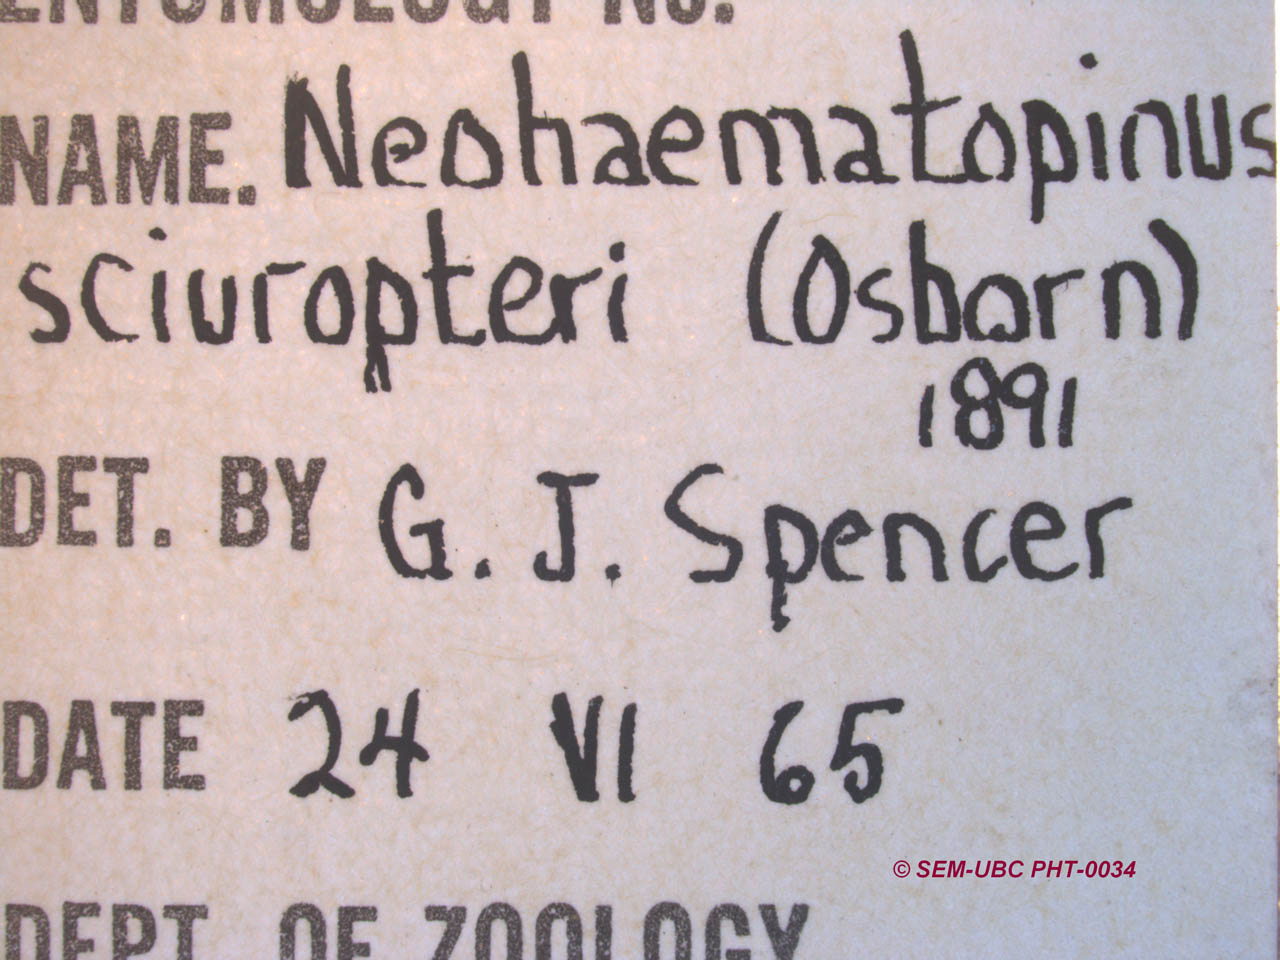 ENTOMOLOGY NO.
NAME. Neohaematopinus
sciuropteri (Osborn)
1891
DET. BY G. J. Spencer
DATE 24 VI 65
© SEM-UBC PHT-0034
DEPT. OF ZOOLOGY